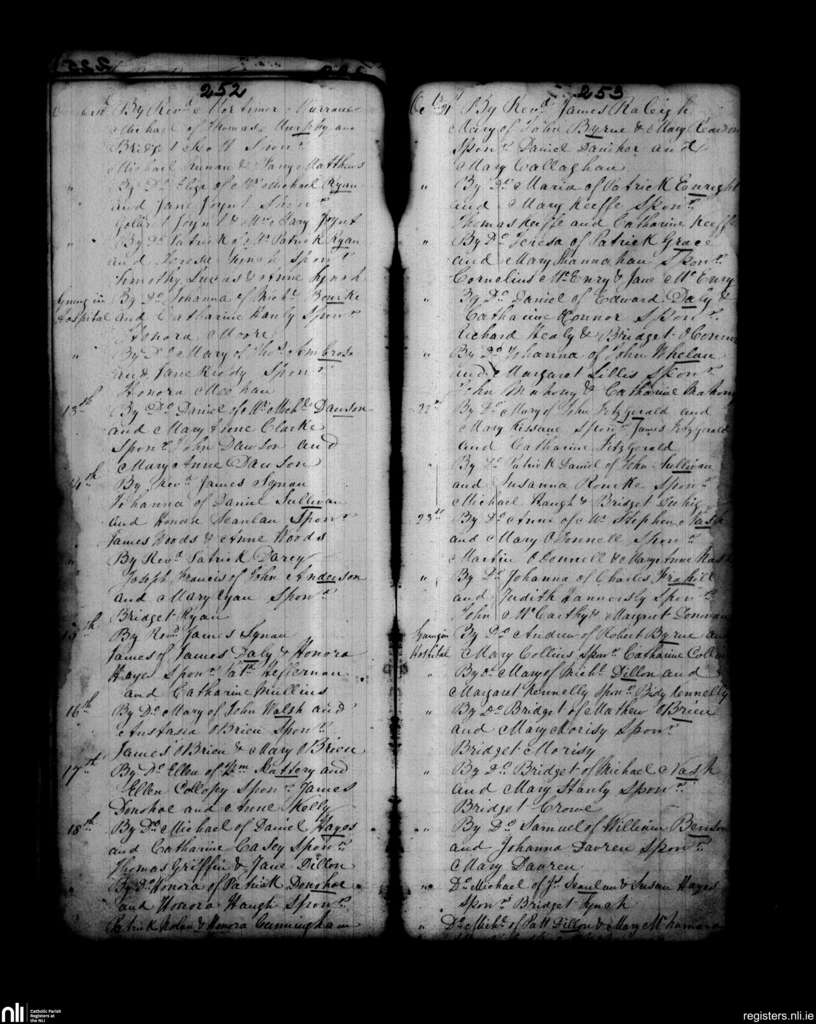 252
By Revd Mortimer
Michael of Thomas Murphy and
Bridget Sponrs
Michael & Fanny Matthews
" By Do Eliza of Mr Michael Ryan
and Jane Joynt Sponrs
Joynt & Mrs Mary Joynt
" By Do Patrick of Mr Patrick Ryan
and Teresa Lynch Sponrs
Timothy Lucas & Anne Lynch
Lying in By Do Johanna of Michl Bourke
Hospital and Catharine Hanly Sponr
Honora Moore
" By Do Mary of Thos Ambrose
and Jane Reidy Sponr
Honora Meehan
13th By Do Daniel of Mr Michl Dawson
and Mary Anne Clarke
Sponrs John Dawson and
Mary Anne Dawson
14th By Revd James Synan
Johanna of Daniel Sullivan
and Honora Scanlan Sponrs
James Woods & Anne Woods
" By Revd Patrick Darcy
Joseph Francis of John Anderson
and Mary Ryan Sponr
Bridget Ryan
15th By Revd James Synan
James of James Daly & Honora
Hayes Sponrs Patk Heffernan
and Catharine Mullins
16th By Do Mary of John Walsh and
Anstasia OBrien Sponrs
James OBrien & Mary OBrien
17th By Do Ellen of Wm Slattery and
Ellen Collopy Sponrs James
Donohoe and Anne Skelly
18th By Do Michael of Daniel Hayes
and Catharine Casey Sponrs
Thomas Griffin & Jane Dillon
" By Do Honora of Patrick Donohoe
and Honora Haugh Sponrs
Patrick Nolan & Honora Cunningham
253
Oct 21st By Revd James Raleigh
Mary of John Byrne & Mary Reardon
Sponrs Daniel Danihor and
Mary Callaghan
" By Do Maria of Patrick Enright
and Mary Keeffe Sponrs
Thomas Keeffe and Catharine Keeffe
" By Do Teresa of Patrick Grace
and Mary Hannahan Sponrs
Cornelius McEnry & Jane McEnry
" By Do Daniel of Edward Daly &
Catharine Connor Sponrs
Richard Healy & Bridget OConnor
" By Do Johanna of John Whelan
and Margaret Lillis Sponrs
John Mahony & Catharine Mahony
22nd By Do Mary of John Fitzgerald and
Mary Kissane Sponrs James Fitzgerald
and Catharine Fitzgerald
" By Do Patrick Daniel of John Sullivan
and Susanna Rourke Sponrs
Michael Haugh & Bridget Duhig
23rd By Do Anne of Mr Stephen Nash
and Mary ODonnell Sponrs
Martin ODonnell & Mary Anne Nash
" By Do Johanna of Charles Frahill
and Judith Hannorsly Sponrs
John McCarthy & Margaret Donovan
Lying in By Do Andrew of Robert Byrne and
Hospital Mary Collins Sponr Catharine Collins
" By Do Mary of Michl Dillon and
Margaret Kennelly Sponr Bidy Connelly
" By Do Bridget of Mathew OBrien
and Mary Morisy Sponr
Bridget Morisy
" By Do Bridget of Michael Nash
and Mary Hanly Sponr
Bridget Crowe
" By Do Samuel of William Benson
and Johanna Davren Sponr
Mary Davren
" Do Michael of Js Scanlan & Susan Hayes
Sponr Bridget Lynch
" Do Michl of Patt Dillon & Mary McNamara
nli
Catholic Parish
Registers at
the NLI
registers.nli.ie